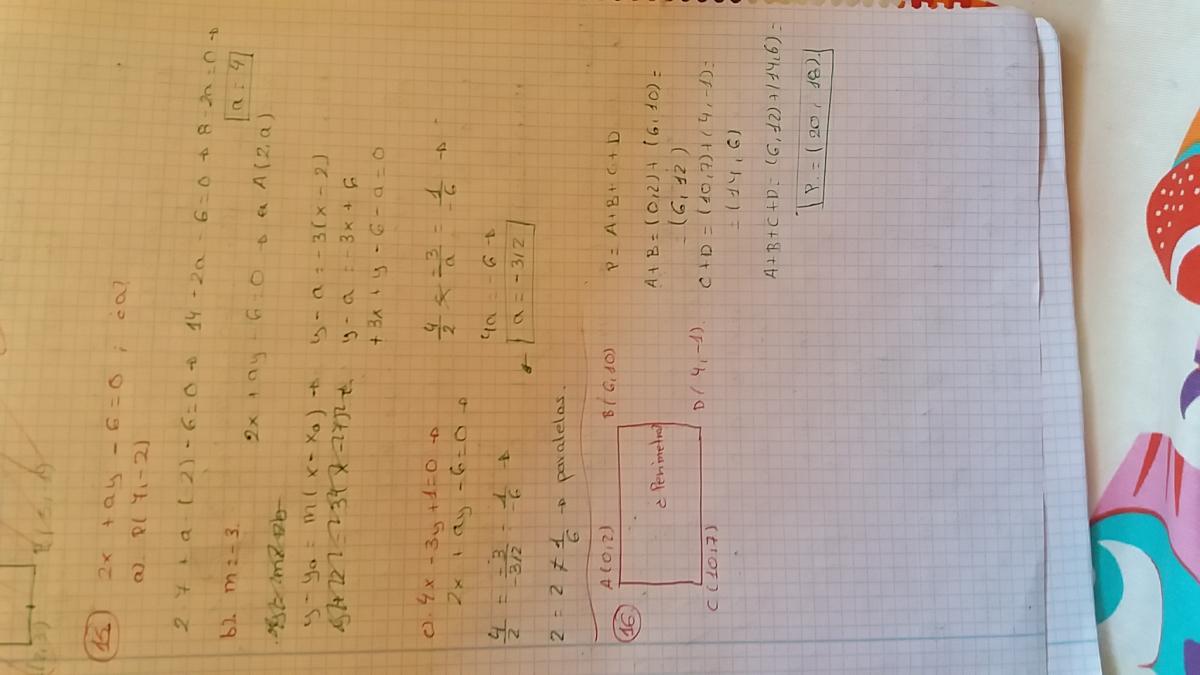 15 2x + ay - 6 = 0 ; ¿a?
a). P(4,-2)
2·7 + a·(-2) - 6 = 0 → 14 - 2a - 6 = 0 → 8 - 2a = 0 →
a = 4
b). m = -3.
2x + ay - 6 = 0 → A(2,a)
y - y0 = m(x - x0) → y - a = -3(x - 2)
y - a = -3x + 6
+3x + y - 6 - a = 0
c). 4x - 3y + 1 = 0 →
2x + ay - 6 = 0 →
4/2 = -3/a = 1/-6 →
4a = -6 →
a = -3/2
4/2 = -3/-3/2 = 1/-6 →
2 = 2 ≠ 1/6 → paralelas.
16. A(0,2) B(6,10)
¿Perímetro
C(10,7) D(4,-1).
P = A+B+C+D
A+B = (0,2) + (6,10) =
= (6,12)
C+D = (10,7) + (4,-1) =
= (14,6)
A+B+C+D = (6,12) + (14,6) =
P. = (20, 18).